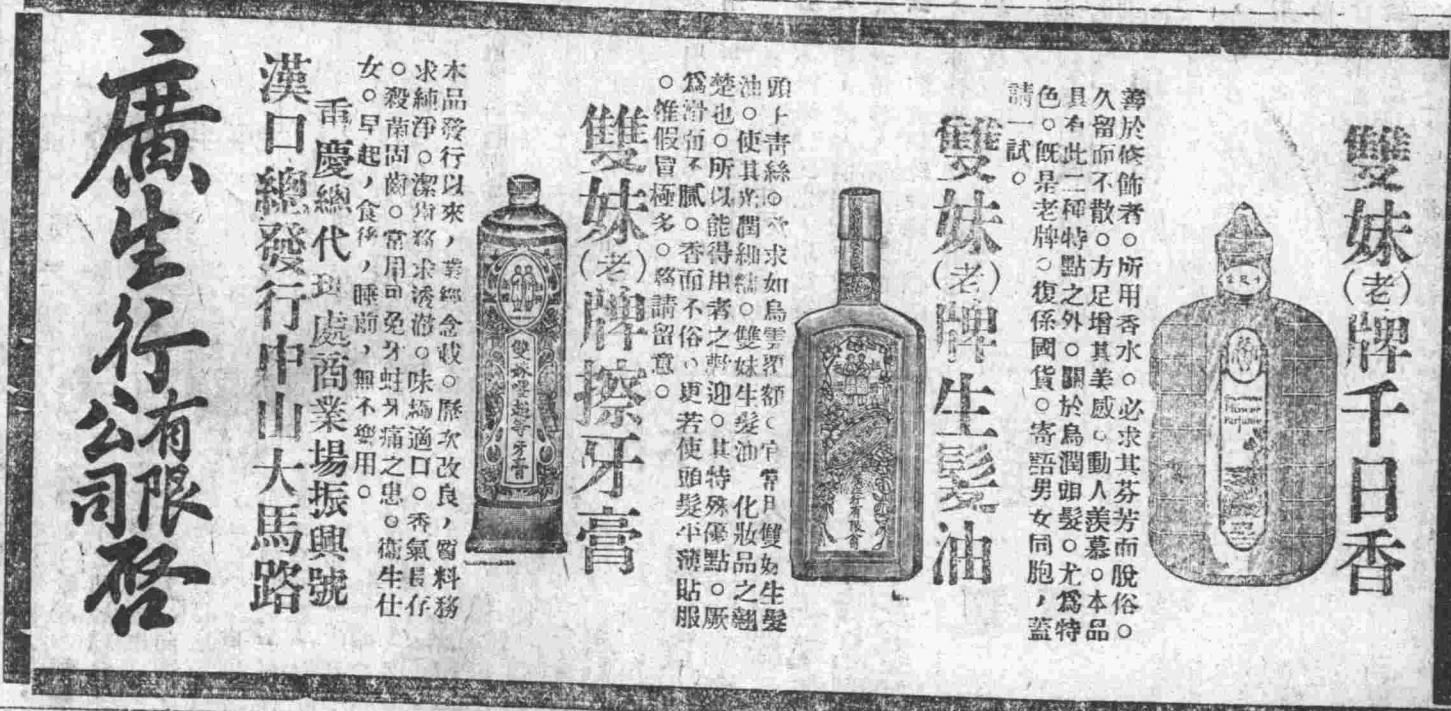 雙妹(老)牌千日香
善於修飾者。所用香水。必求其芬芳而脫俗。
久留而不散。方足增其美感。動人羡慕。本品
具有此二種特點之外。關於烏潤頭髮。尤爲特
色。旣是老牌。復係國貨。寄語男女同胞，蓋
請一試。
Flower
雙妹(老)牌生髮油
頭上靑絲。求如烏雲覆額。雙妹生髮
油。使其光潤細。雙妹生髮油 化妝品之翹
楚也。所以能得用者之歡迎。其特殊優點。厥
爲滑而不膩。香而不俗。更若使頭髮平薄貼服
。惟假冒極多。務請留意。
雙妹(老)牌擦牙膏
雙妹嚜超等牙膏
本品發行以來，業經念載。歷次改良，質料務
求純淨。潔齒務求透澈。味極適口。香氣長存
。殺菌固齒。常用可免牙蛀牙痛之患。衞生仕
女。早起，食後，睡前，無不樂用。
重慶總代理處商業場振興號
漢口總發行中山大馬路
廣生行有限公司啓